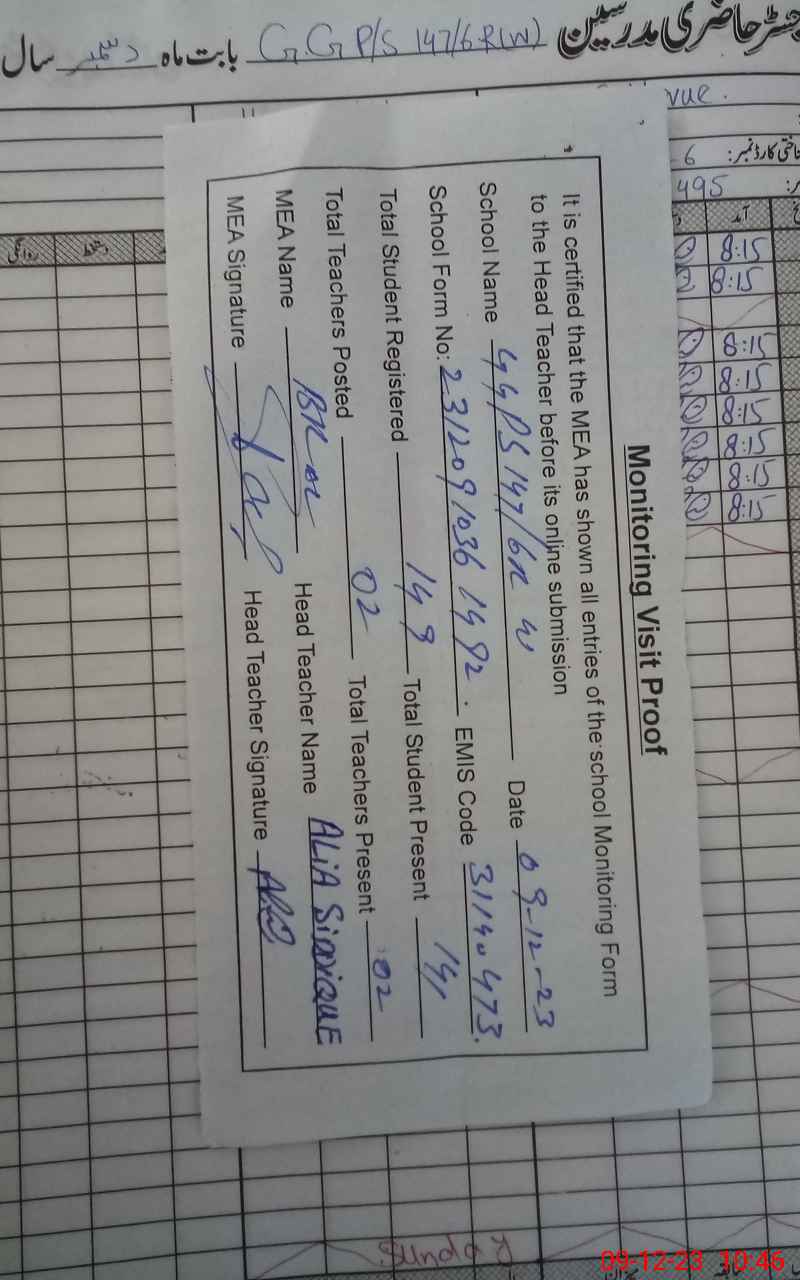 رجسٹر حاضری مدرسین G.G P/S 147/6R(W) بابت ماہ دسمبر سال
vue.
6
495
آمد
8:15
8:15
8:15
8:15
8:15
8:15
8:15
8:15
Monitoring Visit Proof
It is certified that the MEA has shown all entries of the school Monitoring Form
to the Head Teacher before its online submission
School Name GGPS 147/6R W Date 09-12-23
School Form No: 2312091036 1492. EMIS Code 31140473.
Total Student Registered 149 Total Student Present 141
Total Teachers Posted 02 Total Teachers Present 02
MEA Name Head Teacher Name ALiA SiDDiQUE
MEA Signature Head Teacher Signature
Sunday
09-12-23 10:46